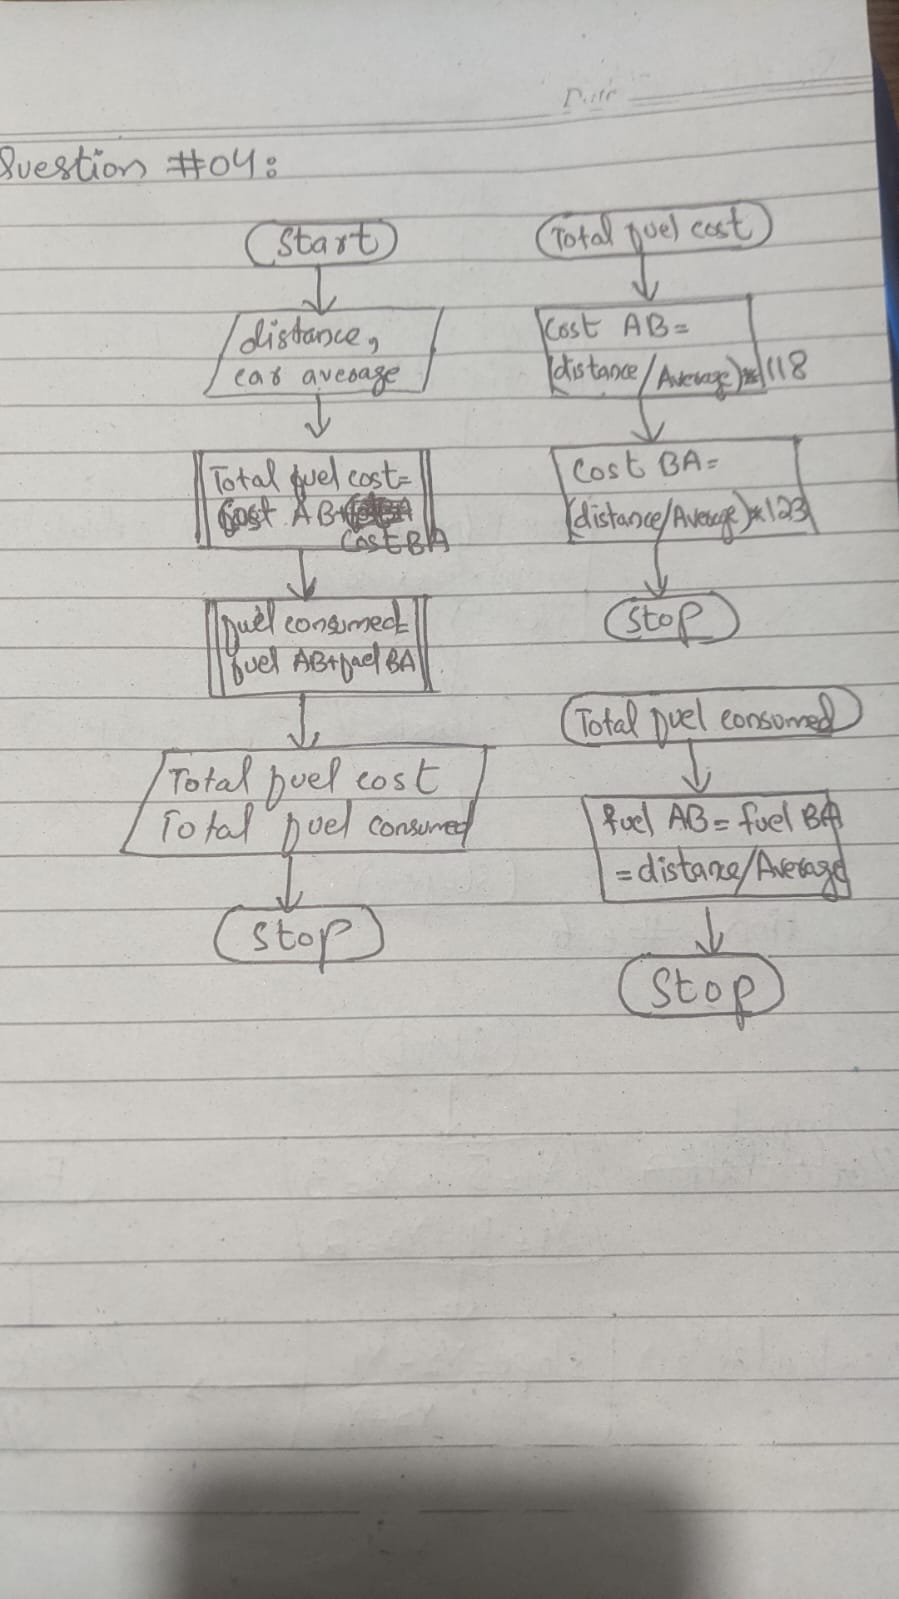 Date
Question #04:
Start
distance,
car average
Total fuel cost=
Cost AB+
Cost BA
fuel consumed=
fuel AB+fuel BA
Total fuel cost
Total fuel consumed
Stop
Total fuel cost
Cost AB=
(distance/Average)*118
Cost BA=
(distance/Average)*123
Stop
Total fuel consumed
fuel AB= fuel BA
=distance/Average
Stop